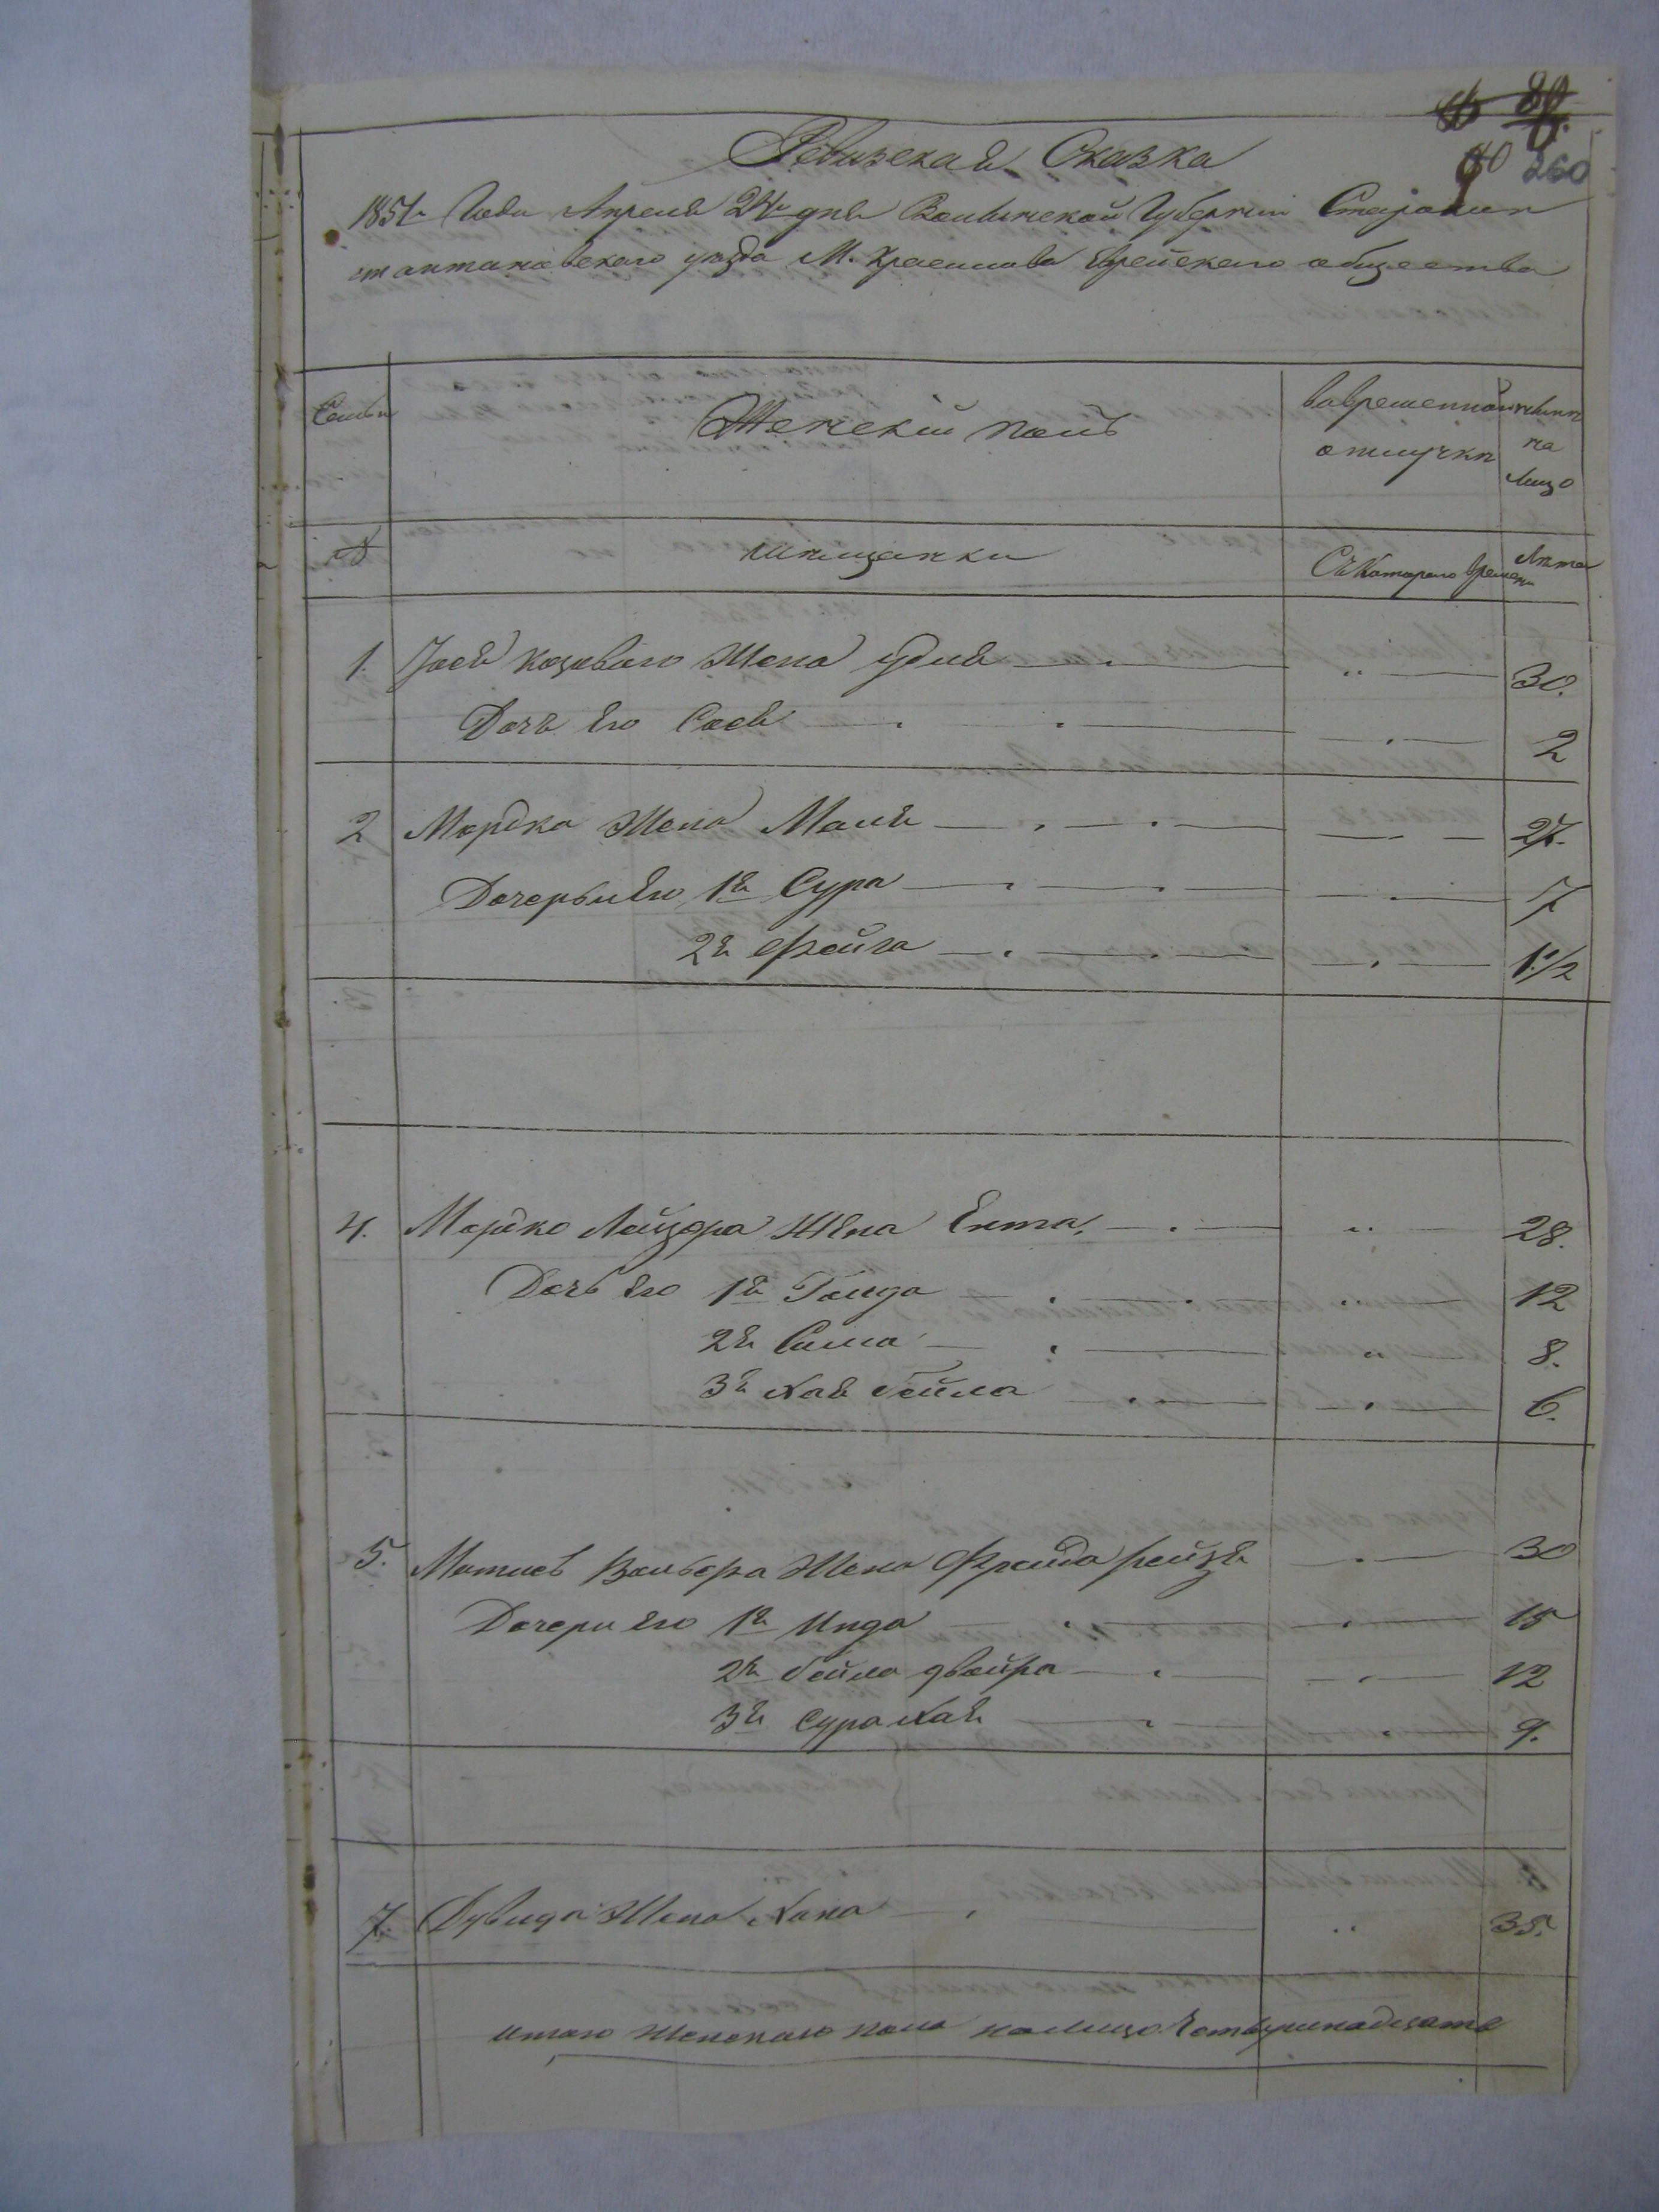 80
60 260
Ревизская Сказка
1851 Года Апреля 24 дня Волынской Губернии Старокон
стантиновского уезда М. Красилова Еврейского общества
Семьи
Женский полъ
во временной
отлучки
ныне
на
лицо
№
мещанки
Съ Котораго времени
Лета
1. жена удля 30.
Дочь Его Сося 2
2 Мордка Жена Маля 27.
Дочерьи Его 1я Сура 7
2я Фейга 1 1/2
4. Мордко Лейзора Жена Ента 28.
Дочь Его 1я Голда 12
2я Сима 8.
3я Хая Бейла 6.
5. Жена Фрейда рейзя 30
Дочери Его 1я Инда 15
2я бейла двойра 12
3я Сура Хая 9.
7. Дувида Жена Хана 35.
итого Женскаго пола на Лицо Четырнадцать